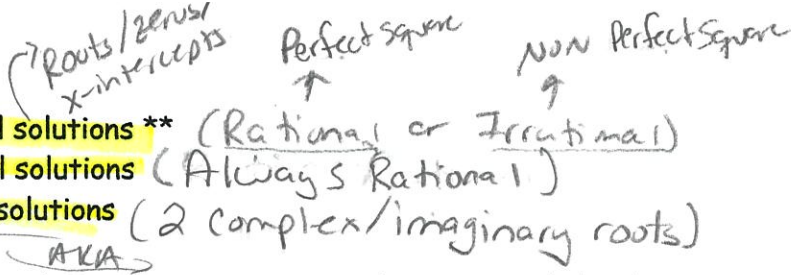 Roots/zeros/
x-intercepts
Perfect Square
NON Perfect Square
l solutions ** (Rational or Irrational)
l solutions (Always Rational)
solutions (2 complex/imaginary roots)
AKA